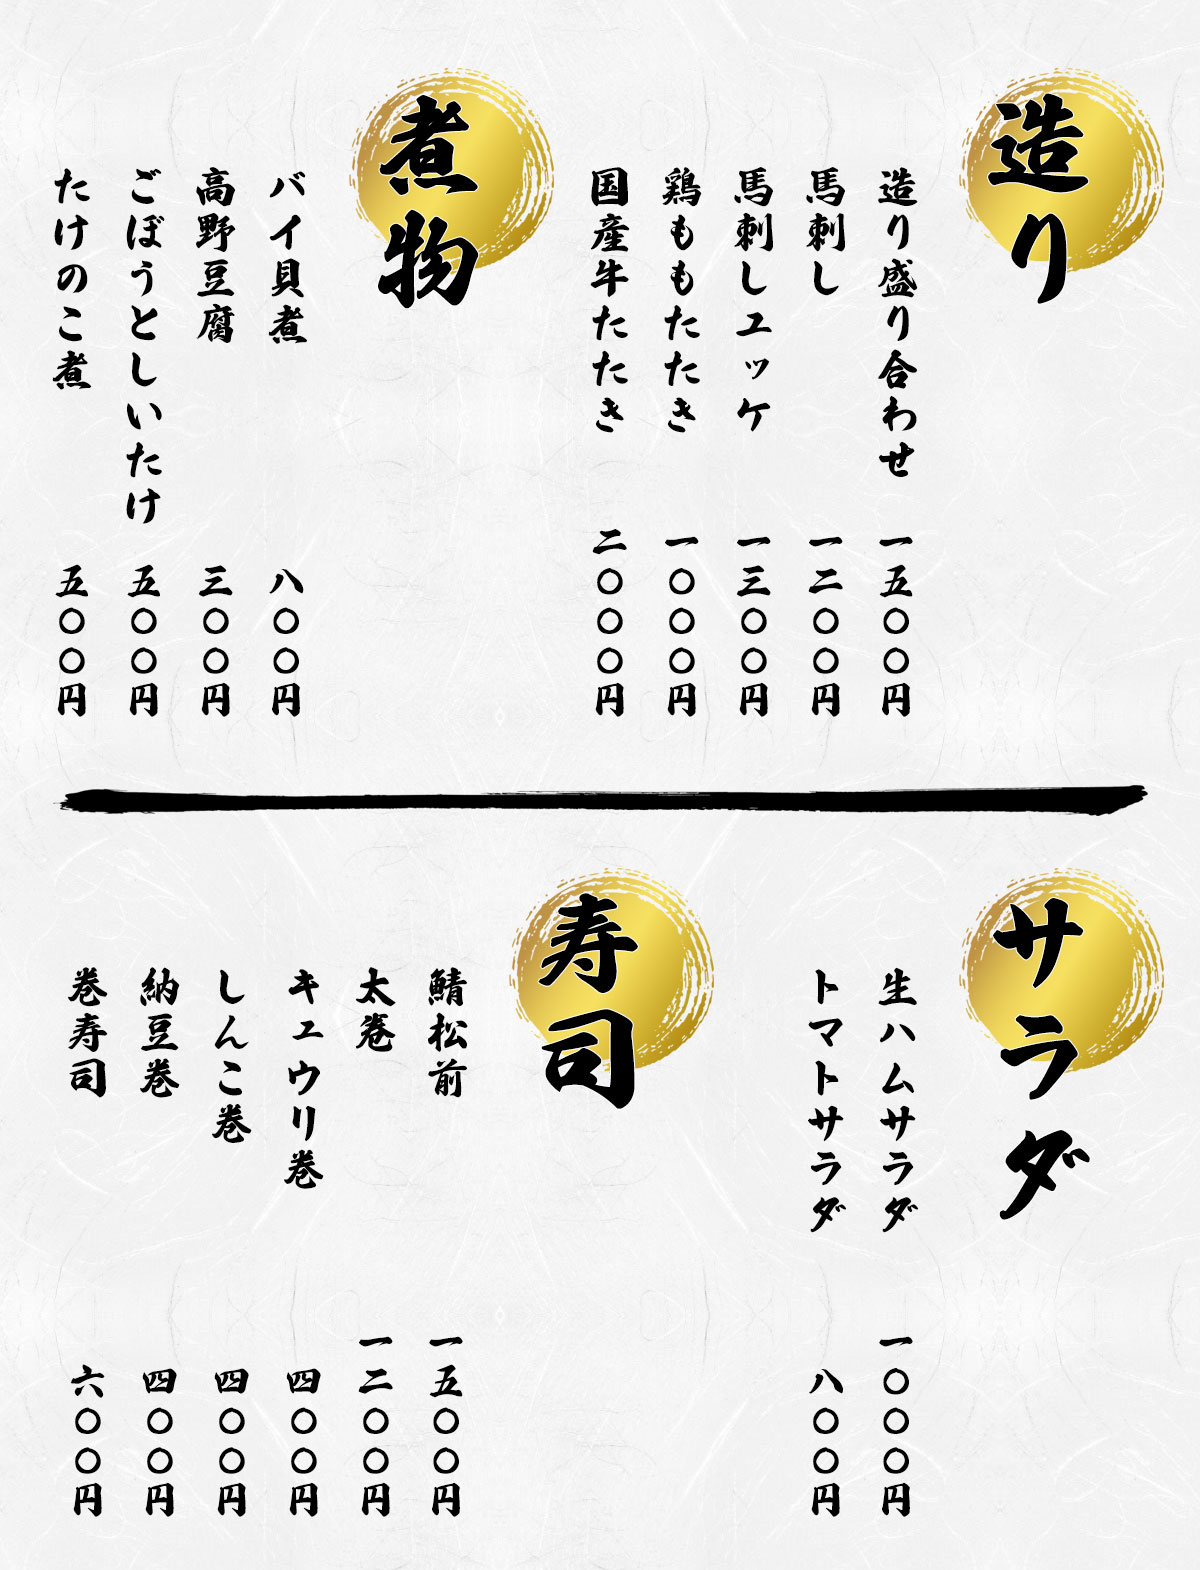 造り
造り盛り合わせ 一五〇〇円
馬刺し 一二〇〇円
馬刺しユッケ 一三〇〇円
鶏ももたたき 一〇〇〇円
国産牛たたき 二〇〇〇円
煮物
バイ貝煮 八〇〇円
高野豆腐 三〇〇円
ごぼうとしいたけ 五〇〇円
たけのこ煮 五〇〇円
サラダ
生ハムサラダ 一〇〇〇円
トマトサラダ 八〇〇円
寿司
鯖松前 一五〇〇円
太巻 一二〇〇円
キュウリ巻 四〇〇円
しんこ巻 四〇〇円
納豆巻 四〇〇円
巻寿司 六〇〇円